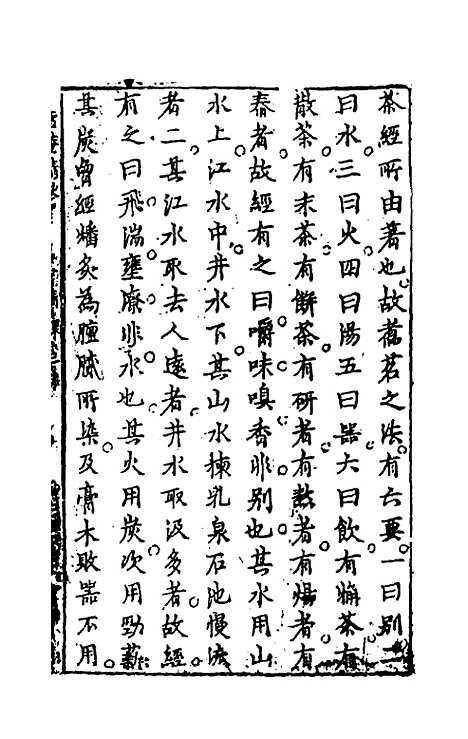 茶經所由著也故蒸茗之法有六要一曰別二
曰水三曰火四曰湯五曰器六曰飲有觕茶有
散茶有末茶有餅茶有研者有熬者有煬者有
舂者故經有之曰嚼味嗅香非別也其水用山
水上江水中井水下其山水揀乳泉石池慢流
者二其江水取去人遠者井水取汲多者故經
有之曰飛湍壅潦非水也其火用炭次用勁薪
其炭曾經燔炙為膻膩所染及膏木敗器不用